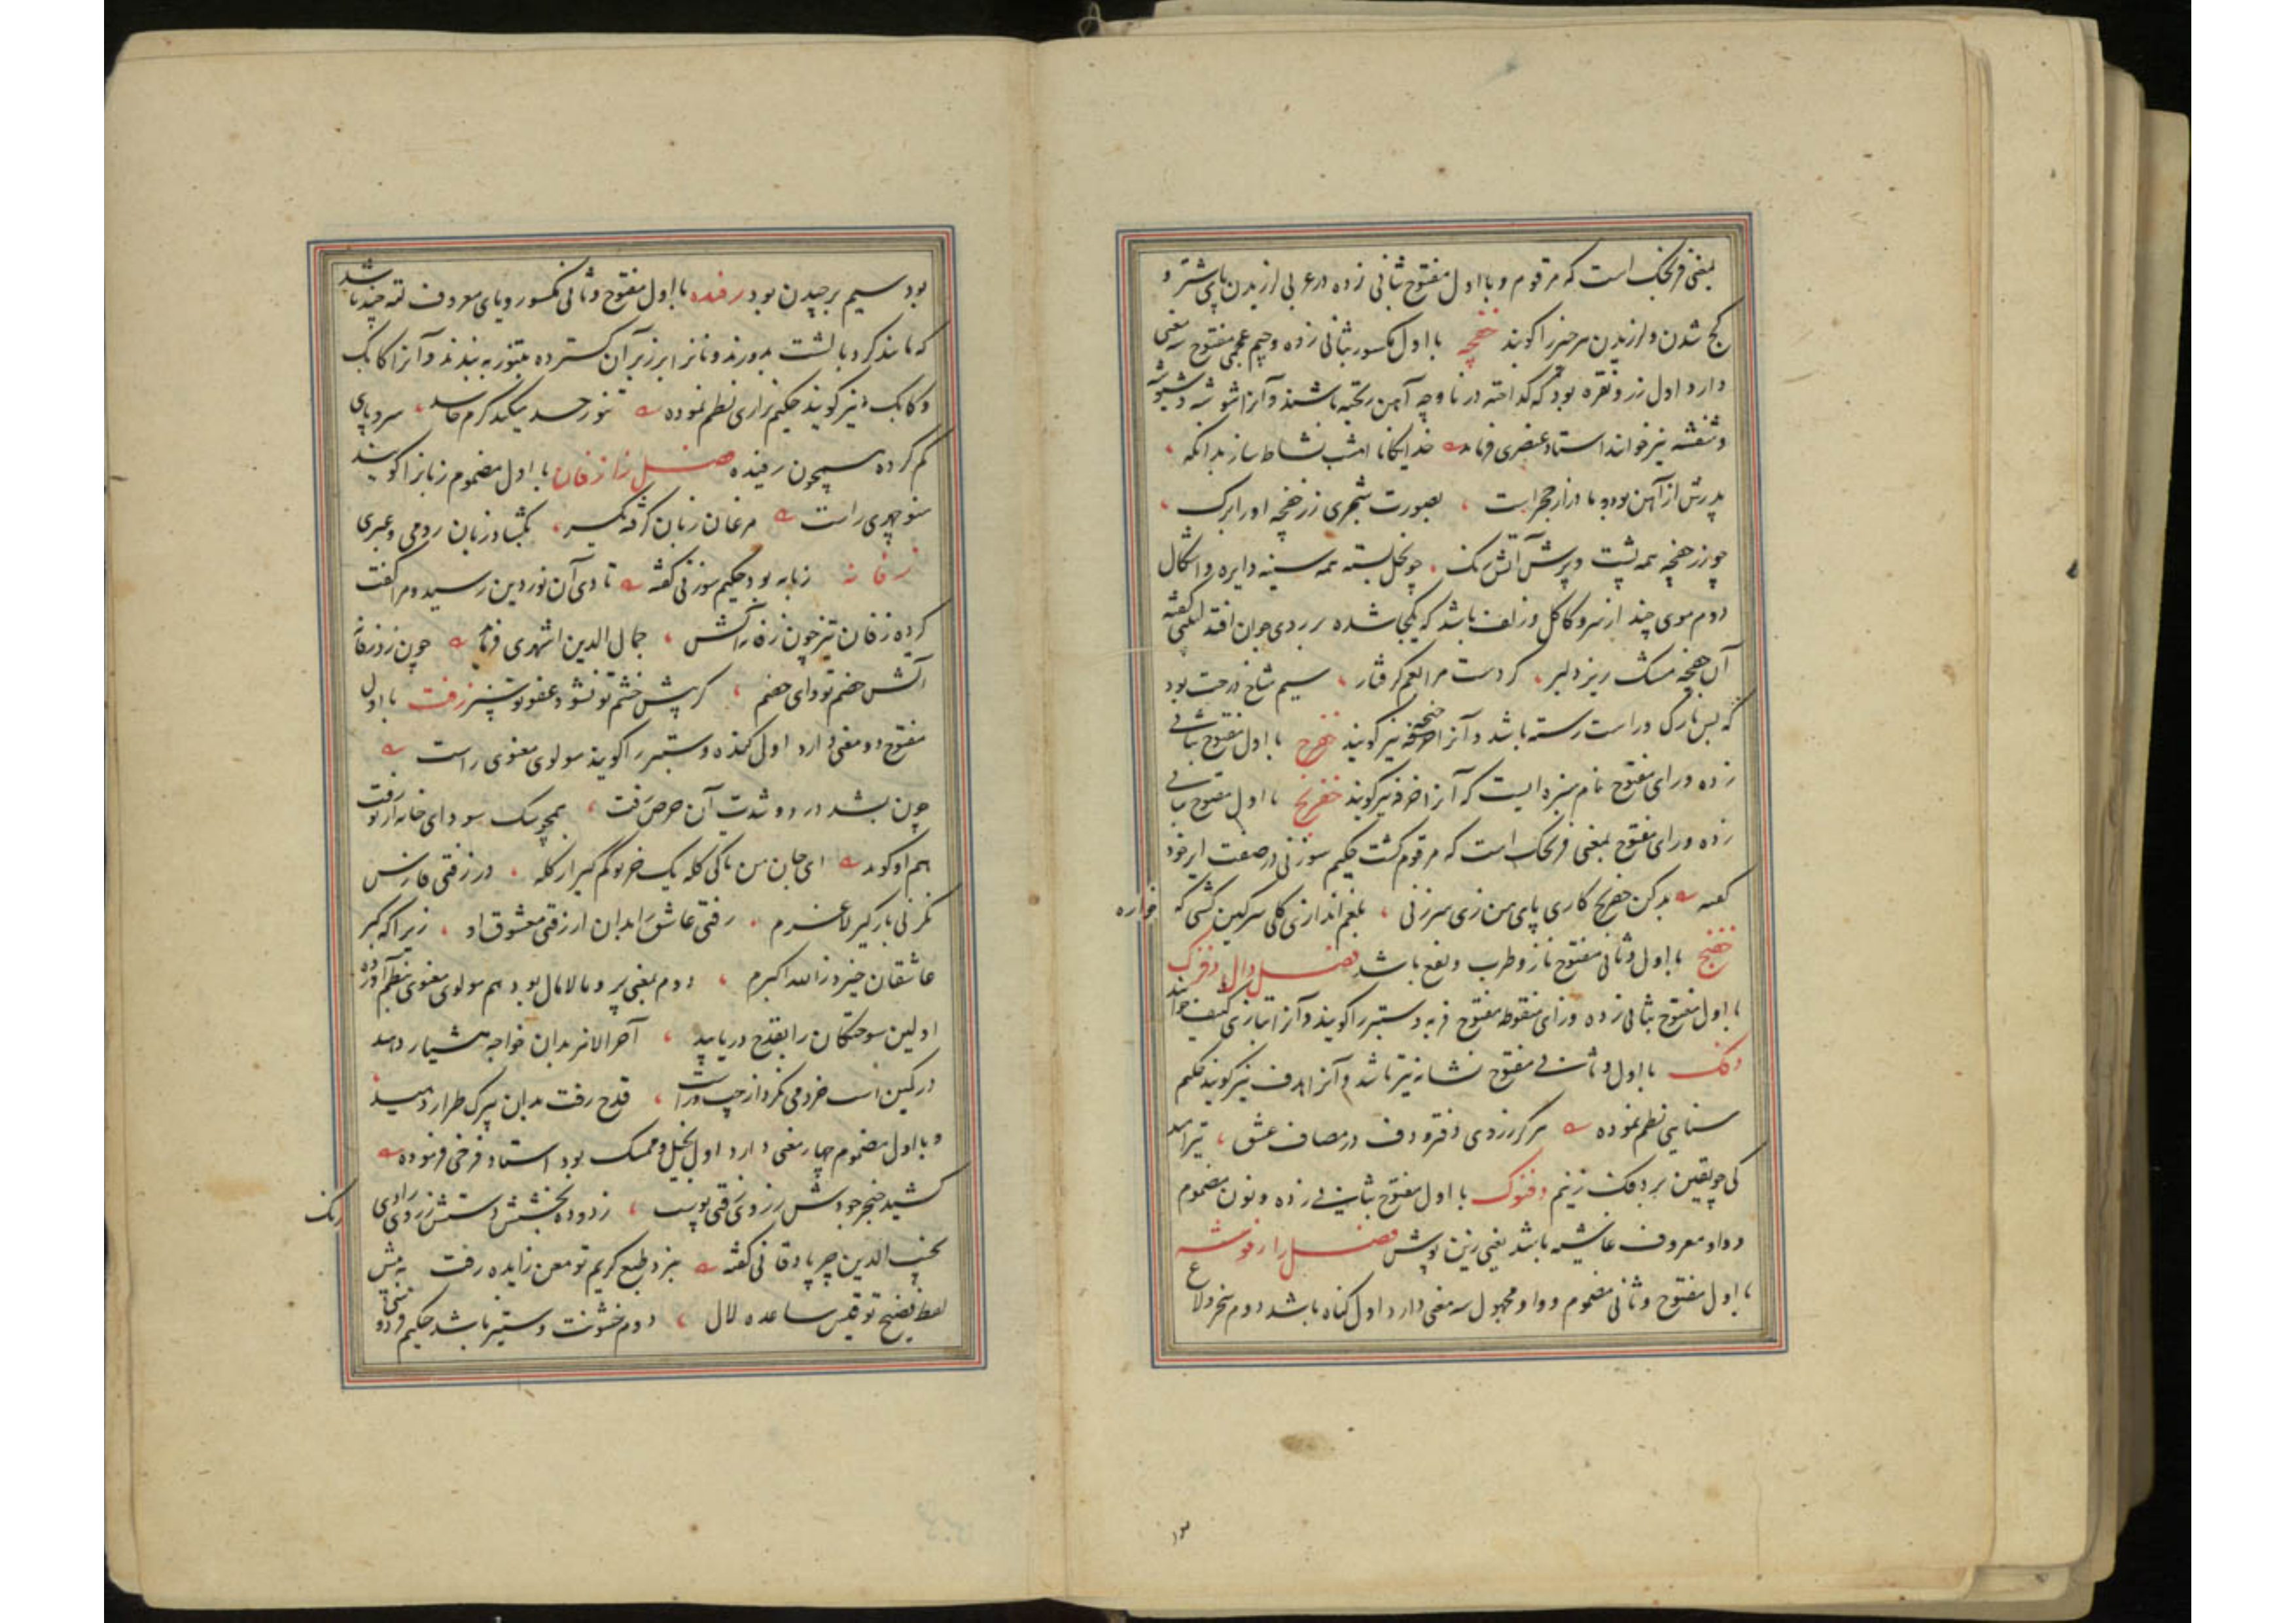 بمعنی فرنجک است که مرقوم و با اول مفتوح بثانی زده در عربی لرزیدن پای شتر و
کج شدن و لرزیدن هر چیز را کویند خفچه با اول مکسور بثانی زده و جیم عجمی مفتوح سه معنی
دارد اول زر و نقره بود که کداخته در ناوچه آهن ریخته باشند و آنرا شوشه و شیوشه
و شفشه نیز خوانند استاد عنصری فرماید خدایکانا امشب نشاط ساز بدانکه
پدرش از آهن بوده مادر از حجر است بصورت شجری زر خفچه اورا برک
چو زر خفچه همه پشت و برش آتش رنک چو نخل بسته همه سینه دایره و اشکال
دوم موی چند از سر و کاکل و زلف باشد که یکجا شده بر روی جوان افتد کفته
آن خفچه مشک ریز دلبر کردست مرا بغم کرفتار سیم شاخ درخت بود
که بس نازک و راست رسته باشد و آنرا خفچه نیز کویند خفرج با اول مفتوح بثانی
زده و رای مفتوح نام سبزه ایست که آنرا خرفه نیز کویند خفرنج با اول مفتوح بثانی
زده و رای مفتوح بمعنی فرنجک است که مرقوم کشت حکیم سوزنی در صفت ایر خود
کفته بدکن خفرنج کاری پای من زی سرزنی بلغم اندازی کلی سرکین کشی که
خواره
خفنج با اول و ثانی مفتوح ناز و طرب و نفع باشد فصل دال دفزک
با اول مفتوح بثانی زده و زای منقوطه مفتوح فربه و ستبر را کویند و آنرا بتازی کثیف خوانند
دفک با اول و ثانی مفتوح نشانه تیر باشد و آنرا هدف نیز کویند حکیم
سنایی نظم نموده هر کرز دی دفتر و دف در مصاف عشق تیر امید
کی چو یقین بر دفک زنیم دفنوک با اول مفتوح بثانی زده و نون مضموم
و واو معروف غاشیه باشد یعنی زین پوش فصل را رفوشه
با اول مفتوح و ثانی مضموم و واو مجهول سه معنی دارد اول کناه باشد دوم سخر و لاغ
بود سیم برچیدن بود رفیده با اول مفتوح و ثانی مکسور و یای معروف لته چند باشد
که مانند کرد بالشت بدوزند و نانرا بر زبر آن کسترده بتنور به بندند و آنرا کابک
و کابک نیز کویند حکیم نزاری نظم نموده تنور حسد میکند کرم حاسد سر و پای
کم کرده همچون رفیده فصل زا زفان با اول مضموم زبانرا کویند
منوچهری راست مرغان زبان کرفته یکسر بکشاده زبان رومی و عبری
زفانه زبانه بود حکیم سوزنی کفته تا دی آن نور دین رسید و مرا کفت
کرده زفان تیز چون زفانه آتش جمال الدین اشهری فرماید چون زد زفانه
آتش خشم تو وای خصم کر پیش خشم تو نشود عفو تو سپر زفت با اول
مفتوح دو معنی دارد اول کنده و ستبر را کویند مولوی معنوی راست
چون بشد در دو شدت آن حرص زفت همچو سک سودای خانه از تو رفت
هم او کوید ای جان من تا کی کله یک خر تو کم کیر از کله در زفتی فارس
نکر نی بارکیر لاغرم زفتی عاشق را بدان از زفتی معشوق او زیرا که کبر
عاشقان خیزد ز الله اکبرم دوم بمعنی پر و مالامال بود هم مولوی معنوی بنظم آورده
اولین سوختکان را بقدح دریابید آخر الامر بدان خواجه هشیار دهید
در کمین است خرد می نکرد از چپ و راست قدح زفت بدان پیرک طرار دهید
و با اول مضموم چهار معنی دارد اول بخیل و ممسک بود استاد فرخی فرموده
کشید خنجر جودش ز روی زفتی پوست زدوده بخشش دستش ز روی رادی
زنک
نجیب الدین جرپادقانی کفته بنزد طبع کریم تو معن زایده زفت به پیش
لفظ فصیح تو قیس ساعده لال دوم خشونت و ستیز باشد حکیم فردوسی